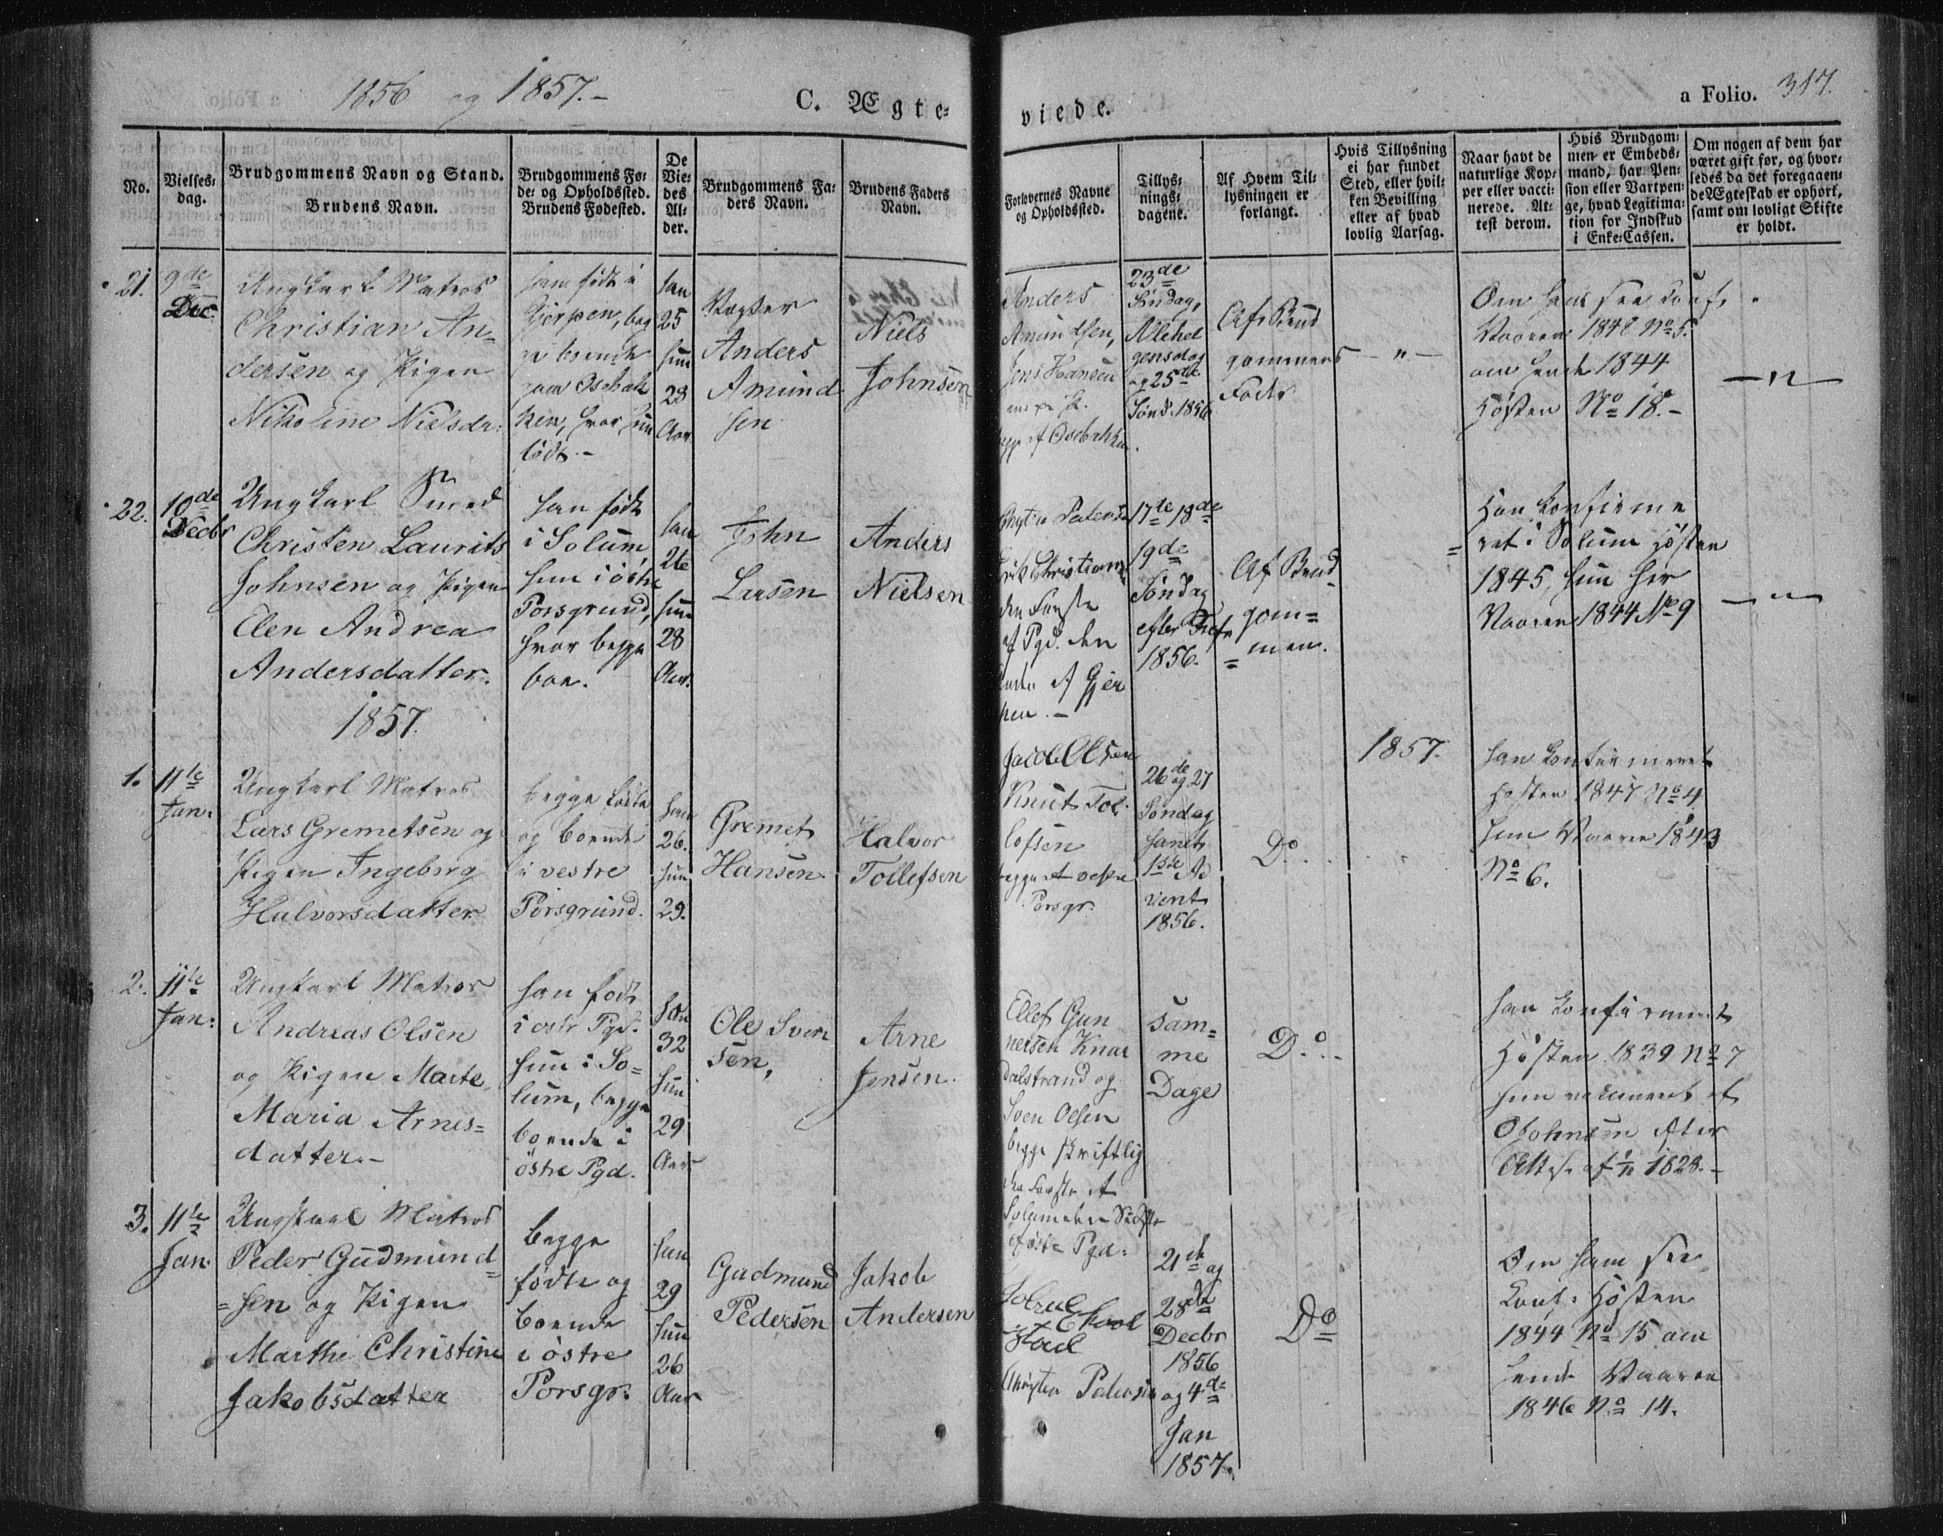 1856 og 1857.-
C. Ægte-
viede.
a Folio. 317.
No.
Vielses-
dag.
Brudgommens Navn og Stand.
Brudens Navn.
Brudgommens Fø-
de- og Opholdssted.
Brudens Fødested.
De
Vie-
des
Al-
der.
Brudgommens Fa-
ders Navn.
Brudens Faders
Navn.
Forlovernes Navne
og Opholdssted.
Tillys-
nings-
dagene.
Af Hvem Til-
lysningen er
forlangt.
Hvis Tillysning
ei har fundet
Sted, eller hvil-
ken Bevilling
eller af hvad
lovlig Aarsag.
Naar havt de
naturlige Kop-
per eller vacci-
nerede. At-
test derom.
Hvis Brudgom-
men er Embeds-
mand, har Pen-
sion eller Vartpen-
ge, hvad Legitima-
tion for Indskud
i Enke-Cassen.
Om nogen af dem har
været gift før, og hvor-
ledes da det foregaaen-
de Ægteskab er ophørt,
samt om lovligt Skifte
er holdt.
21.
9de
Dec.
Ungkarl Matros
Christian An-
dersen og Pigen
Nikoline Nielsda:
han født i
Gjerpen, beg
ge boende
paa Osebak
ken, hvor hun
født.-
han
25
hun
28
Aar
Anders
Amund
sen
Niels
Johnsen
Anders
Amundsen,
Jens Hansen
begge af Osebakken.
23de
Søndag,
Allehel
gensdag
og 25de
Sønd. 1856
Af Brud
gommens
Fader
- " -
Om ham see Conf.
Vaaren 1848 No 5.
om hende 1844
Høsten No 18.-
- " -
22.
10de
Decbr
Ungkarl Smed
Christen Laurits
Johnsen og Pigen
Elen Andrea
Andersdatter.
han født
i Solum,
hun i østre
Porsgrund,
hvor begge
boe.
han
26
hun
28
Aar.
John
Larsen
Anders
Nielsen
Erik Christians
den Første
af Pgd. den
Anden af Gjer
pen.-
17te 18de
19de
Søndag
efter Tref.
1856.
Af Brud
gom=
= men.
Han Confirme
ret i Solum Høsten
1845, hun her
Vaaren 1844 No 9
- " -
1857.
1857.
1.
11te
Jan:
Ungkarl Matros
Lars Gremetsen og
Pigen Ingeborg
Halvorsdatter
begge fødte
og boende
i vestre
Porsgrund.
han
26.
hun
29.
Gremet
Hansen
Halvor
Tollefsen
Jacob Olsen
Knut Tol
lofsen
begge af vestre
Porsgr.
26de og 27
Søndag
samt
1ste Ad
vent
1856.
Do.
han Confirmeret
Høsten 1847 No 4
hun Vaaren 1843
No 6.
2.
11te
Jan:
Ungkarl Matros
Andreas Olsen
og Pigen Marte
Maria Arnes=
datter.-
han født
i østr Pgd.
hun i So=
lum, begge
boende i
østre Pgd.
han
32
hun
29
Aar
Ole Sven
sen,
Arne
Jensen.
Ellef Gun
nersen Knar
dalstrand og
Sven Olsen
begge skriftlig
den Første af
Solum den Sidste
af østre Pgd:
Sam=
me
Dage
Do.
han Confirmeret
Høsten 1839 No 7
hun vaccineret af
O Johnsen efter
Att. af 1828.-
3.
11te
Jan.
Ungkarl Matros
Peder Gudmund=
=sen og Pigen
Marthe Christine
Jakobsdatter
begge
fødte og
boende
i østre
Porsgr.
han
29
hun
26
Aar
Gudmund
Pedersen
Jakob
Andersen
21de og
28de
Decbr
1856
og 4de
Jan
1857.
Do
Om ham see
Conf. Høsten
1844 No 15 om
hende Vaaren
1846 No 14.